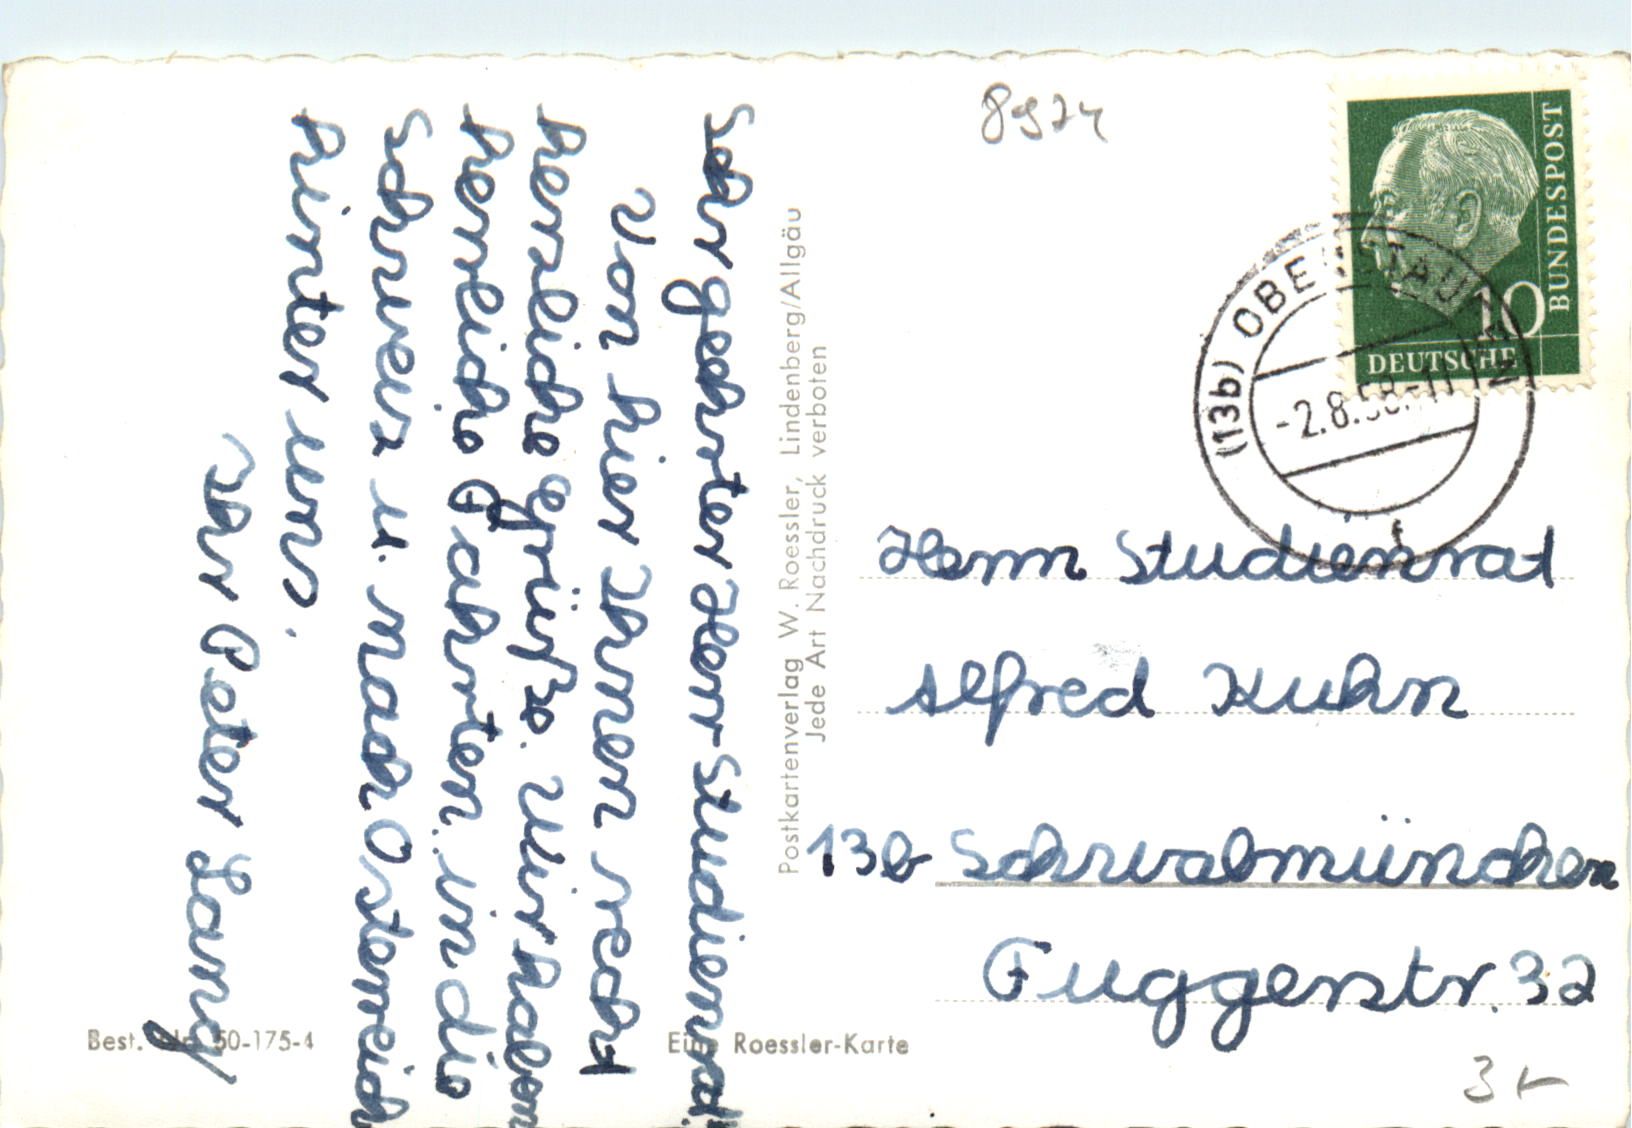 Sehr geehrter Herr Studienrat!
Von hier Ihnen recht
herzliche Grüße. Wir haben
herrliche Fahrten in die
Schweiz u. nach Österreich
hinter uns.
Ihr Peter Lang
Postkartenverlag W. Roessler, Lindenberg/Allgäu
Jede Art Nachdruck verboten
8974
DEUTSCHE BUNDESPOST
10
(13b) OBERSTAUFEN
-2.8.58.-11
Herrn Studienrat
Alfred Kuhn
13b Schwabmünchen
Fuggerstr. 32
Best. Nr. 50-175-4
Eine Roessler-Karte
3